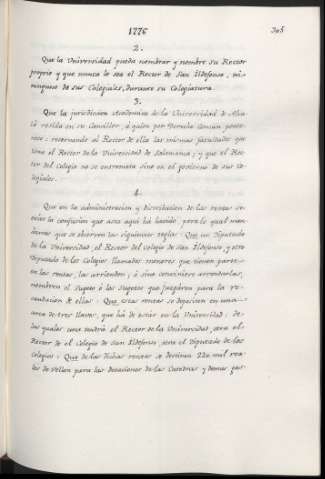 1776
305
2.
Que la Universidad pueda nombrar y nombre su Rector
proprio y que nunca lo sea el Rector de San Ildefonso, ni
ninguno de sus Colegiales, durante su Colegiatura.
3.
Que la jurisdiccion Academica de la Universidad de Alca-
lá resida en su Canciller, á quien por Derecho comun perte-
nece: reservando al Rector de ella las mismas facultades que
tiene el Rector de la Universidad de Salamanca; y que el Rec-
tor del Colegio no se entrometa sino en el gobierno de sus Co-
legiales.
4.
Que en la administracion y distribucion de las rentas se
evite la confusion que asta aqui ha havido, para lo qual man-
do que se observen las siguientes reglas: Que un Diputado
de la Universidad, el Rector del Colegio de San Ildefonso, y otro
Diputado de los Colegios llamados menores que tienen parte
en las rentas, las arrienden; ó sino conviniere arrendarlas,
nombren el Sugeto ó los Sugetos que juzgaren para la re-
caudacion de ellas: Que estas rentas se depositen en una
arca de tres llaves, que há de estár en la Universidad; de
las quales una tendrá el Rector de la Universidad, otra el
Rector de el Colegio de San Ildefonso, otra el Diputado de los
Colegios: Que de las dichas rentas se destinen 220 mil rea-
les de vellon para las dotaciones de las Catedras y demas gas-